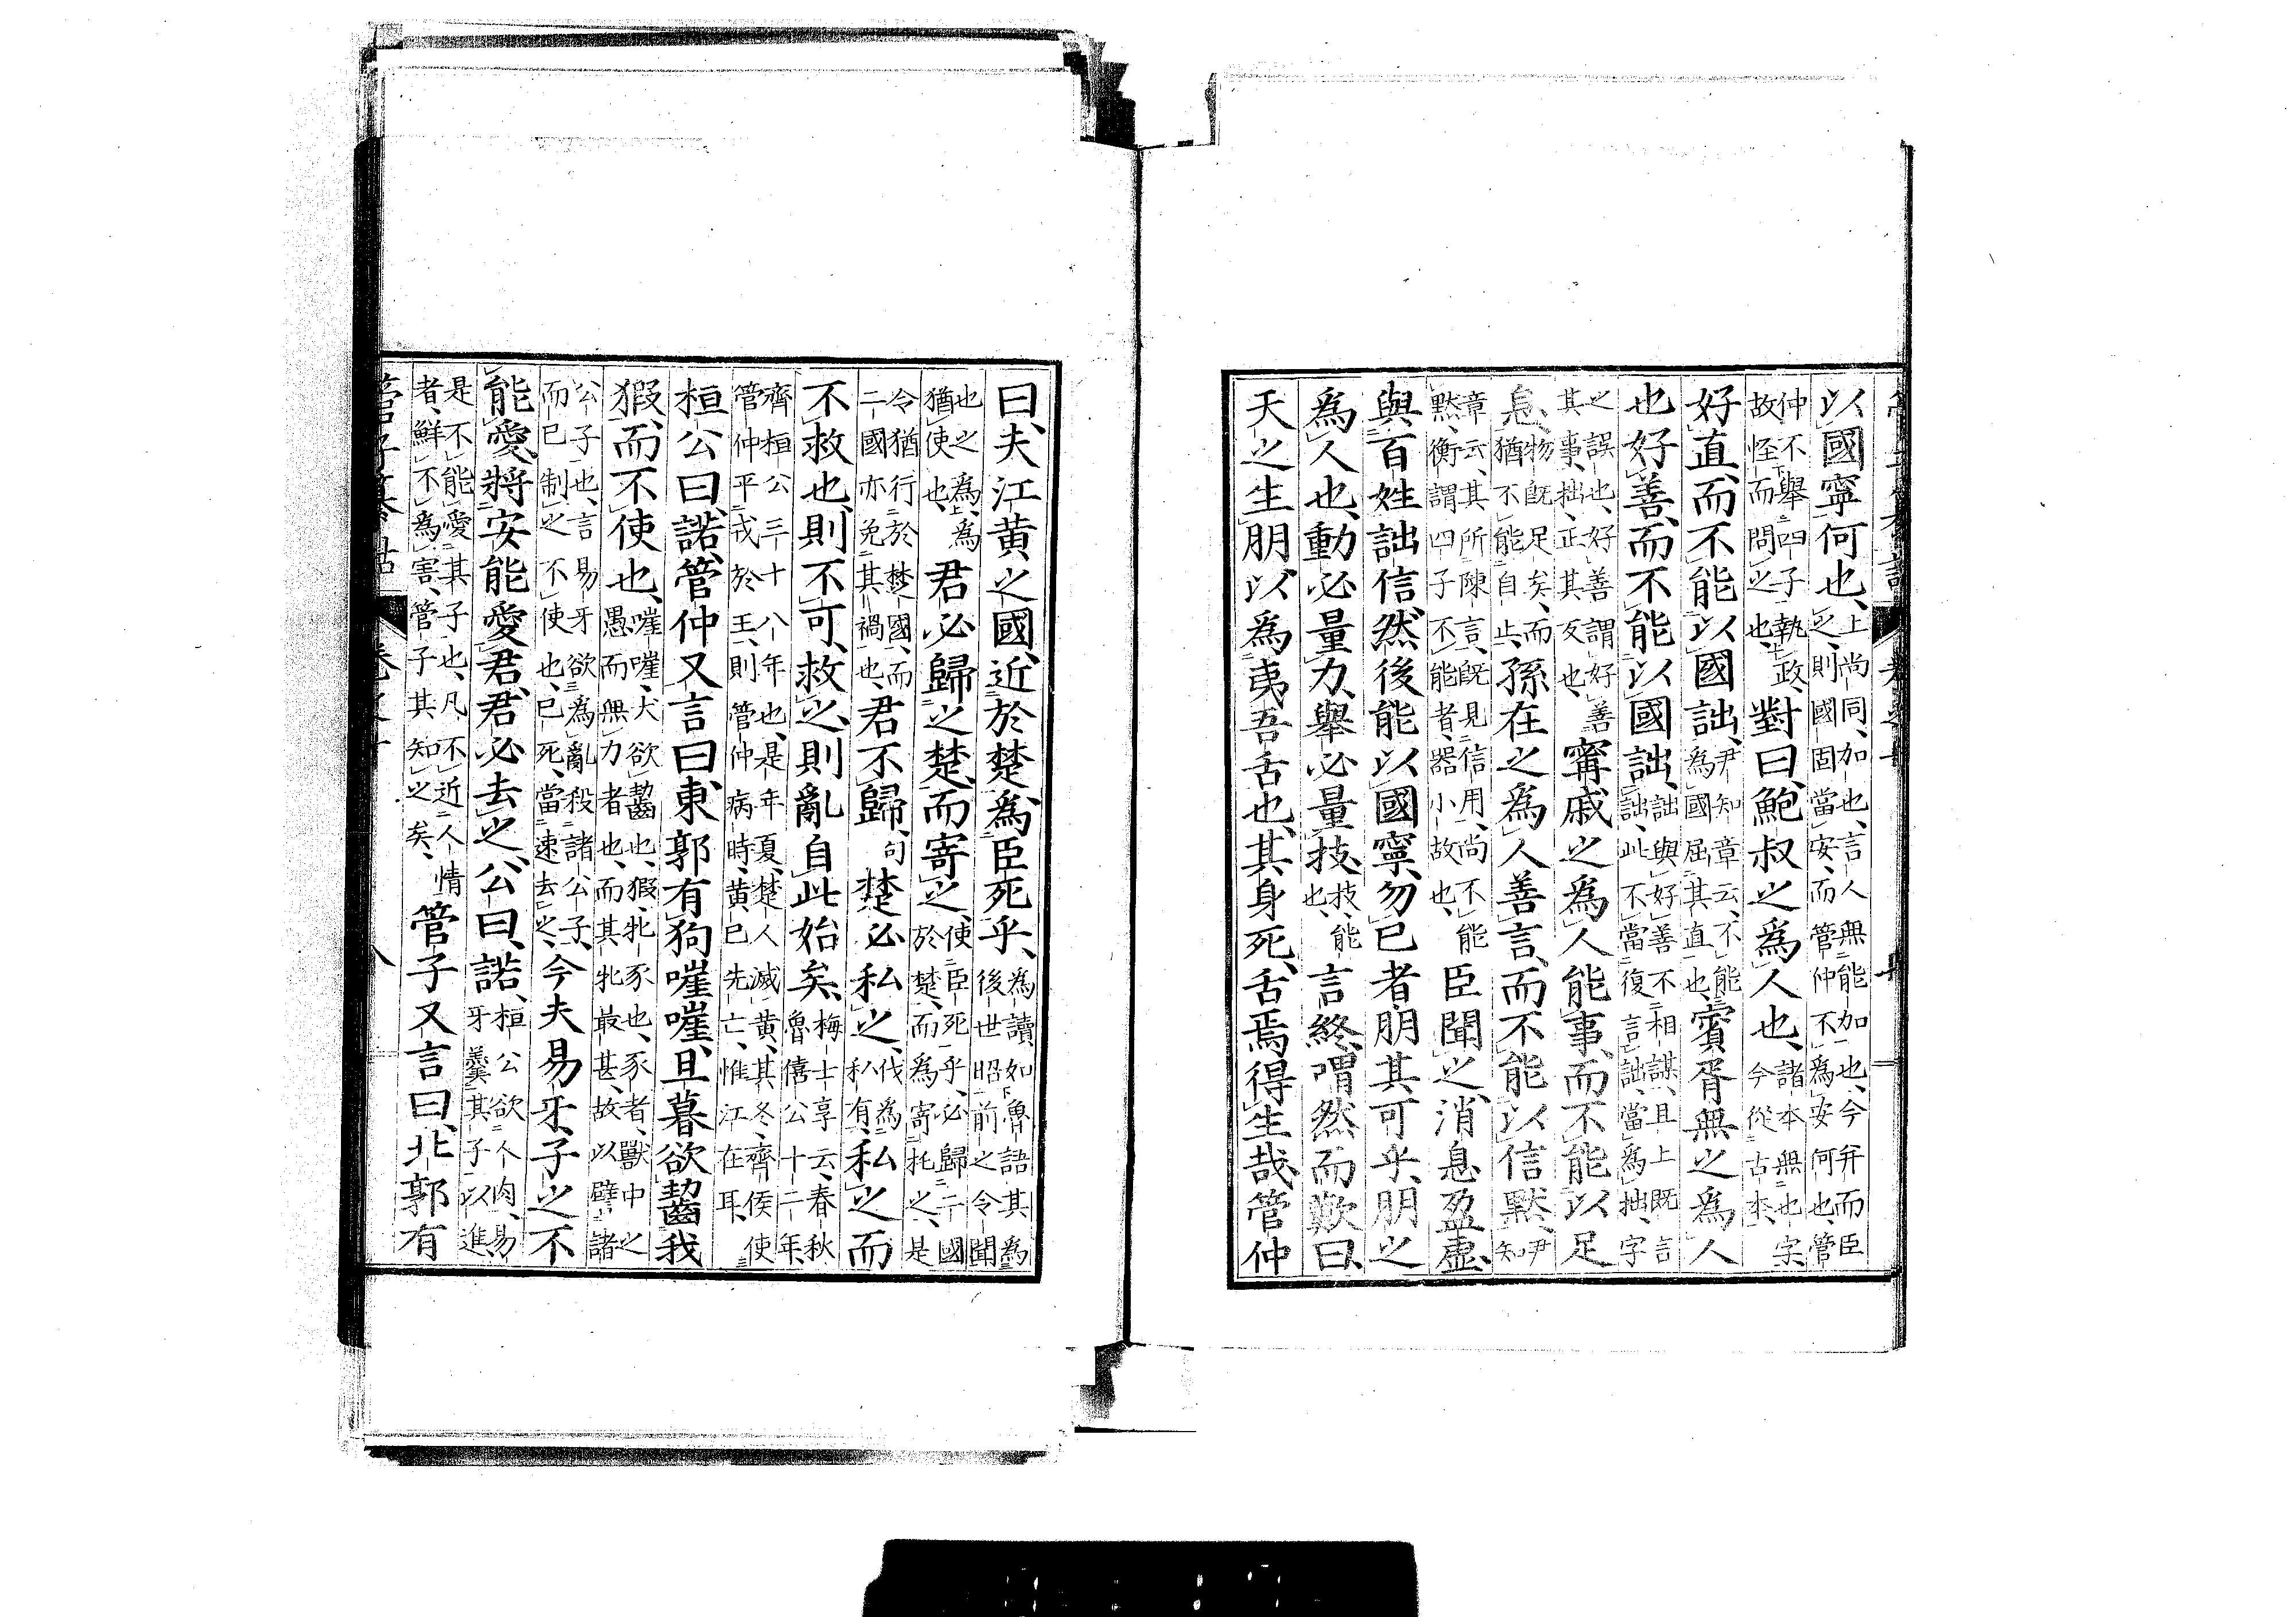 以國寧何也、上尚同、加也、言人無能加也、今幷而臣之、則國固當安、而管仲不爲安何也、管
仲不舉四子執政、故怪而問之也、對曰、鮑叔之爲人也、諸本無也字、今從古本、
好直、而不能以國詘、尹知章云、不能爲國屈其直也、賓胥無之爲人
也好善、而不能以國詘、詘與好善不相謀、且上既言詘、此不當復言詘、當爲拙、字
之誤也、好善謂好善其事、拙、正其反也、甯戚之爲人能事、而不能以足
息、物既足矣、而猶不能自止、孫在之爲人善言、而不能以信默、尹知
章云、其所陳言、既見信用、尚不能默、衡謂四子不能者、器小故也、臣聞之、消息盈虛、
與百姓詘信、然後能以國寧、勿已者、朋其可乎、朋之
爲人也、動必量力、舉必量技、技、能也、言終、喟然而歎曰、
天之生朋、以爲夷吾舌也、其身死、舌焉得生哉、管仲
曰、夫江黃之國、近於楚、爲臣死乎、爲讀如魯語其爲後世昭前之令聞
也之爲、爲猶使也、君必歸之楚、而寄之、使臣死乎、必歸二國於楚、而爲寄托之、是
令猶行於楚國、而二國亦免其禍也、君不歸、句楚必私之、伐爲朳有、私之而
不救也、則不可、救之、則亂自此始矣、梅士享云、春秋魯僖公十二年、
齊桓公三十八年也、是年夏、楚人滅黃、其冬、齊侯使管仲平戎於王、則管仲病時、黃已先亡、惟江在耳、
桓公曰、諾、管仲又言曰、東郭有狗嘊嘊、旦暮欲齧我
猳、而不使也、嘊嘊、犬欲齧也、猳、牝豕也、豕者、獸中之愚而無力者也、而其牝最甚、故以譬諸
公子也、言易牙欲爲亂殺諸公子、而已制之不使也、已死、當速去之、今夫易牙、子之不
能愛、將安能愛君、君必去之、公曰、諾、桓公欲人肉、易牙羹其子以進、
是不能愛其子也、凡不近人情者、鮮不爲害、管子其知之矣、管子又言曰、北郭有
管子纂詁 卷之十 八